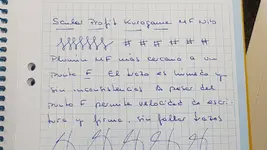 Sailor Profit Kurogane MF Nib
# # # # # #
Plumin MF más cercano a un
punto F. El trazo es húmedo y
sin inconsistencias A pesar del
punto F permite velocidad de escri
tura y firma, sin fallar trazos